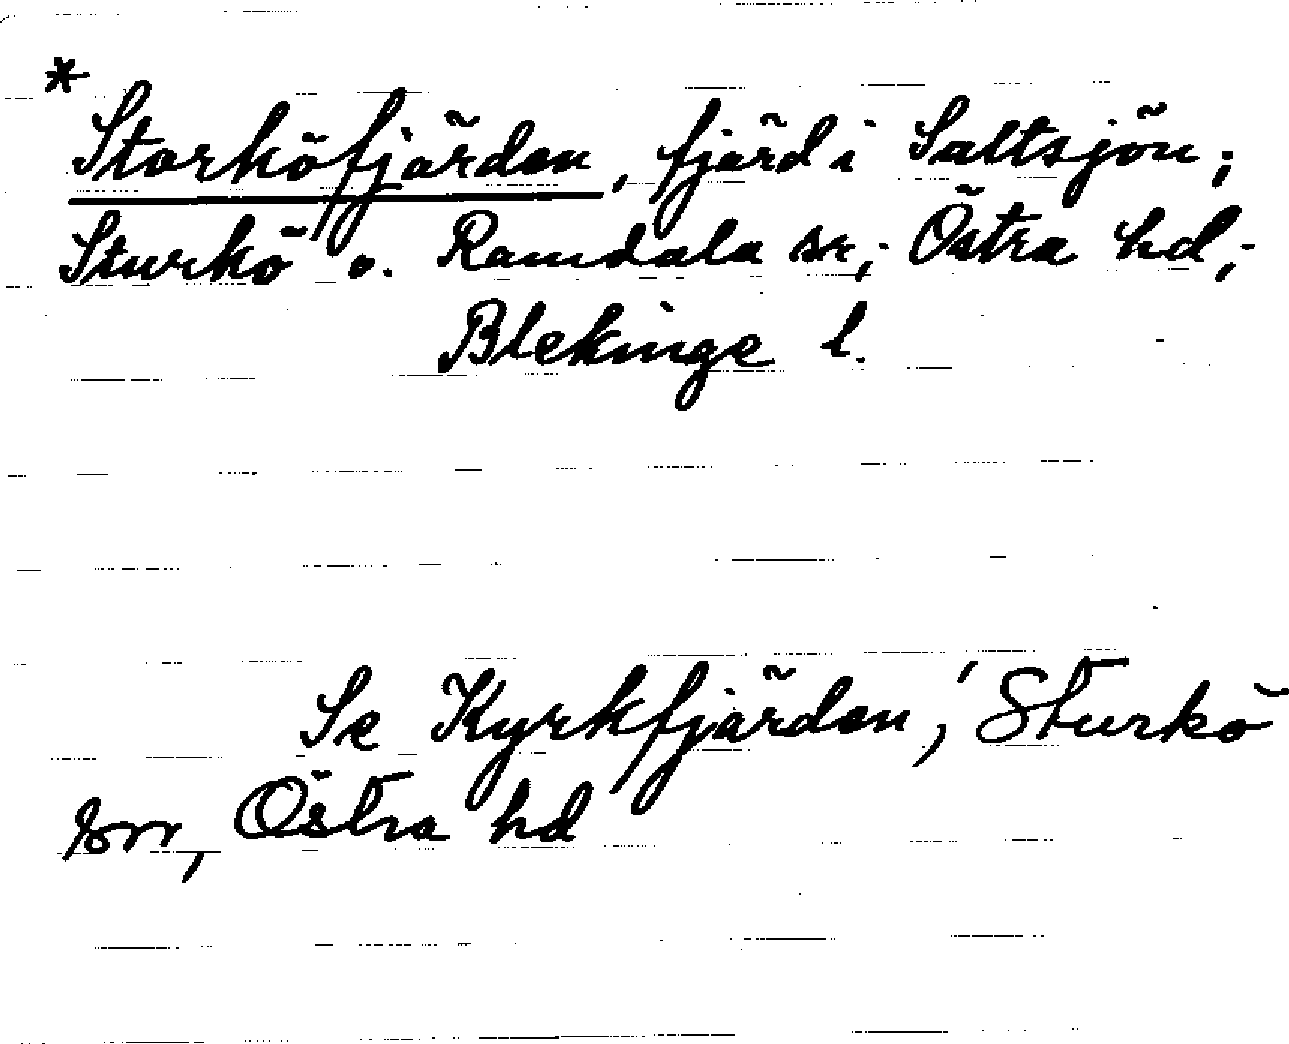 * Storköfjärden, fjärd i Saltsjön;
Sturkö o. Ramdala sr; Östra hd;
Blekinge l.
Se Kyrkfjärden, Sturkö
sn, Östra hd